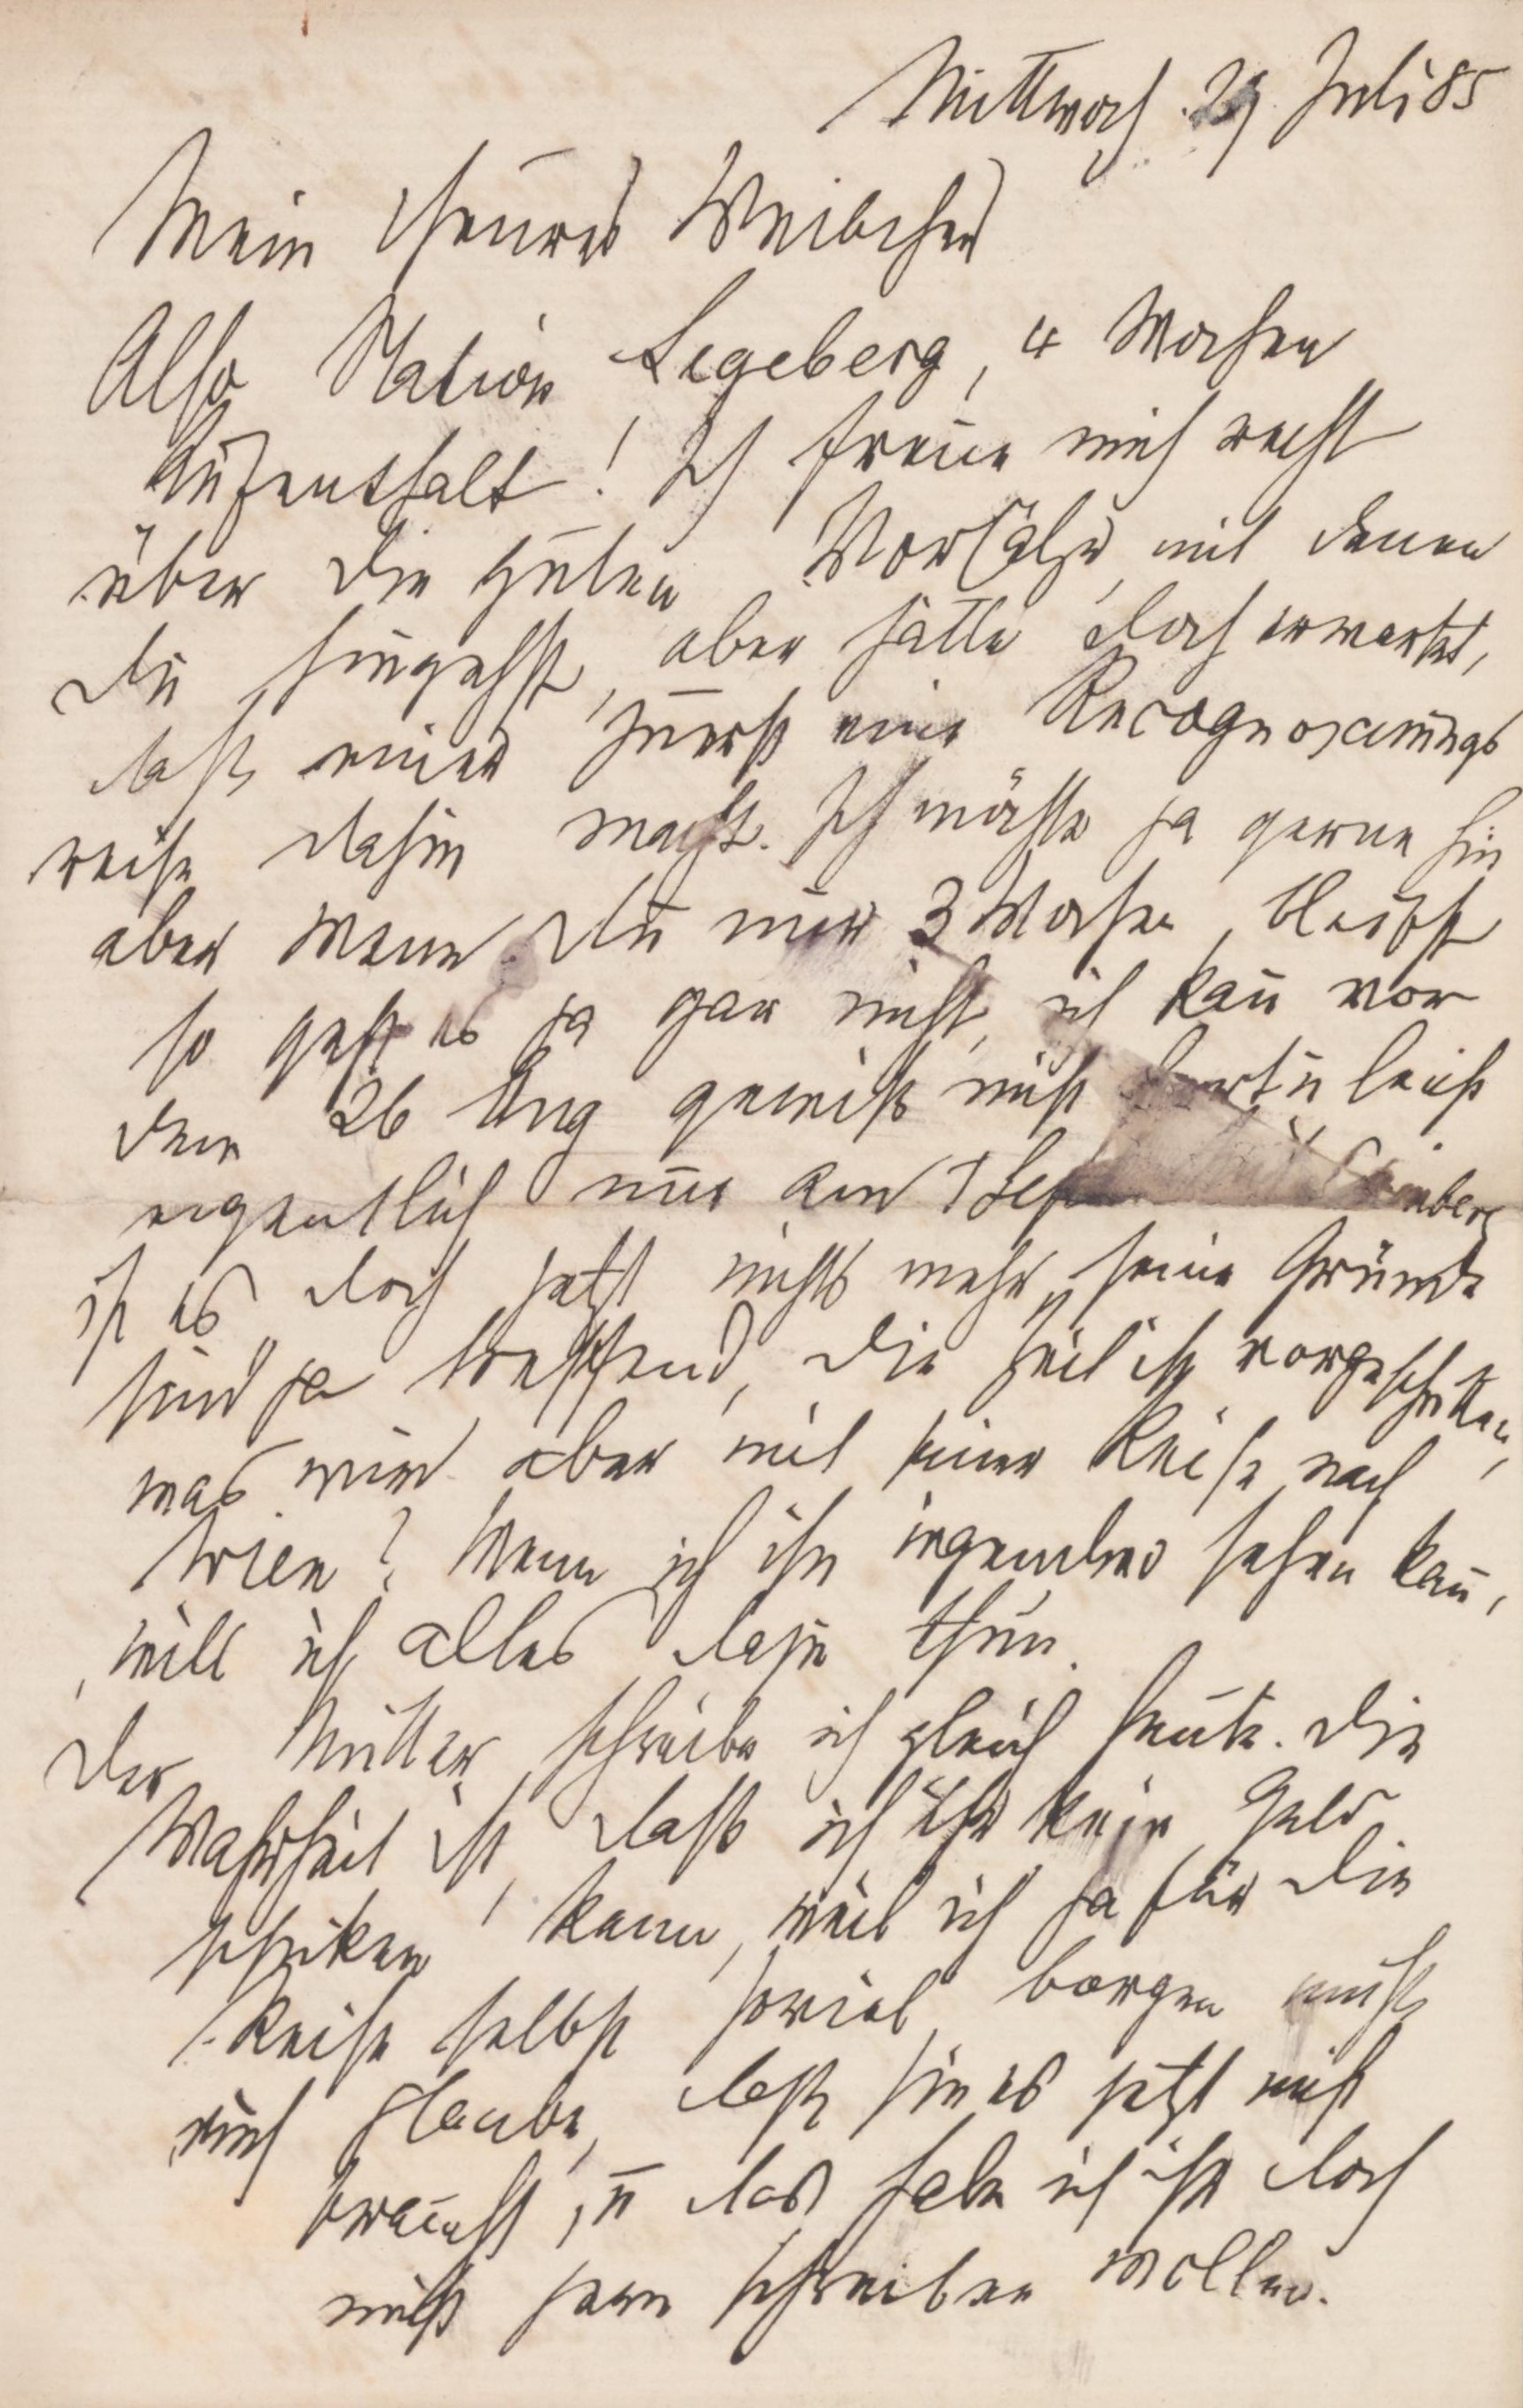 Mittwoch. 29. Juli 85
Mein theures Weibchen
Also Station Segeberg, 4 Wochen
Aufenthalt! Ich freue mich recht
über die guten Vorsätze, mit denen
Du hingehst, aber hätte doch erwartet,
daß einer zuerst eine Recognoscirungs
reise dahin macht. Ich möchte ja gerne hin
aber wenn Du nur 3 Wochen bleibst
so geht es ja gar nicht, ich kañ vor
dem 26 Aug gewiß nicht fort u leicht
eigentlich nur am 1 Sep
ist es doch jetzt nichts mehr, seine Gründe
sind ja treffend, die Zeit ist vorgeschritten,
was wird aber mit seiner Reise nach
Wien? Wenn ich ihn irgendwo sehen kañ,
will ich alles dazu thun.
Der Mutter schreibe ich gleich heute. Die
Wahrheit ist, daß ich ihr kein Geld
schicken kann, weil ich ja für die
Reise selbst soviel borgen muß
und glaube, daß sie es jetzt nicht
braucht, u das habe ich ihr doch
nicht gern schreiben wollen.